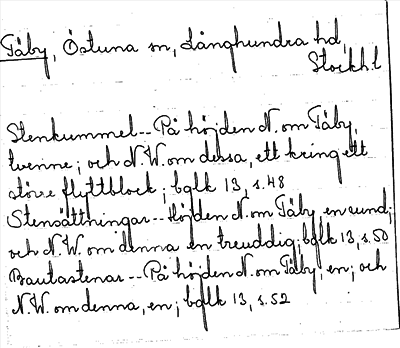 Täby, Östuna sn, Långhundra hd,
Stockh.l
Stenkummel -- På höjden N. om Täby,
tvenne; och N.W. om dessa, ett kring ett
större flyttblock; bqlk 13, s. 48
Stensättningar -- Höjden N. om Täby, en rund;
och N.W. om denna en treuddig; bqlk 13, s. 50
Bautastenar -- På höjden N. om Täby, en; och
N.W. om denna, en; bqlk 13, s. 52